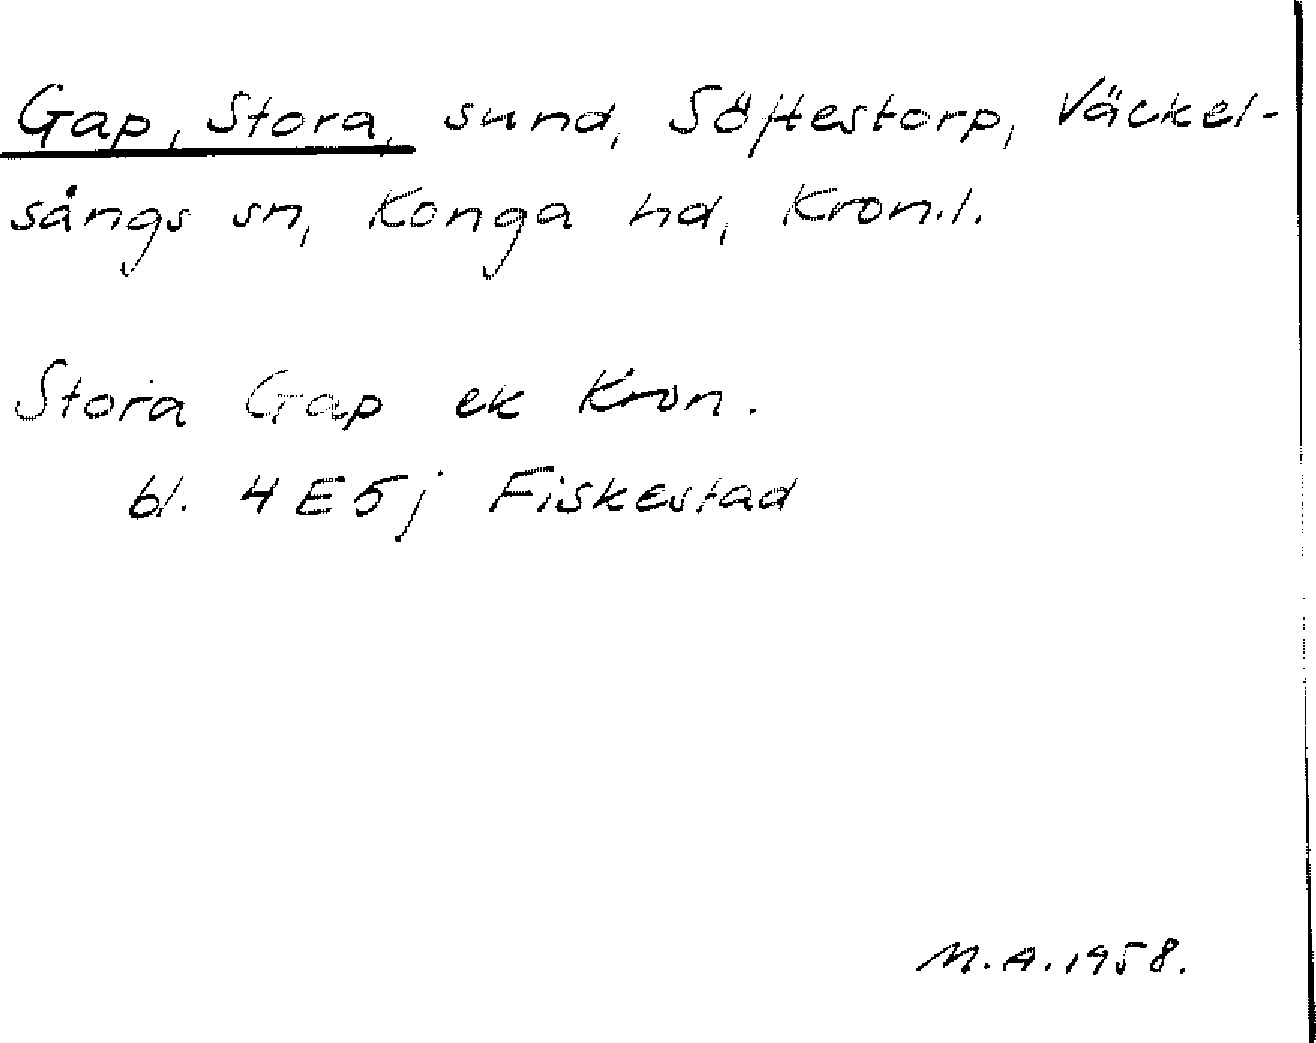 Gap, Stora, sund, Söftestorp, Väckel-
sångs sn, Konga hd, Kron.l.
Stora Gap ek Kron.
bl. 4E5j Fiskestad
M.A. 1958.